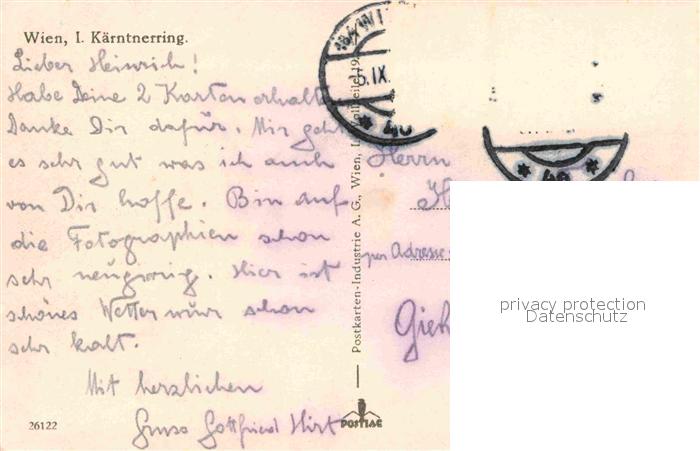 Wien, I. Kärntnerring.
Lieber Heinrich!
Habe Deine 2 Karten erhalten
Danke Dir dafür. Mir geht
es sehr gut was ich auch
von Dir hoffe. Bin auf
die Fotographien schon
sehr neugirig. Hier ist
schönes Wetter nur schon
sehr kalt.
Mit herzlichen
Gruss Gottfried Hirt
26122
Postkarten-Industrie A. G., Wien, I.
POSTIAG
5.IX.
* 40
* 40 *
Herrn
per Adresse
privacy protection
Datenschutz